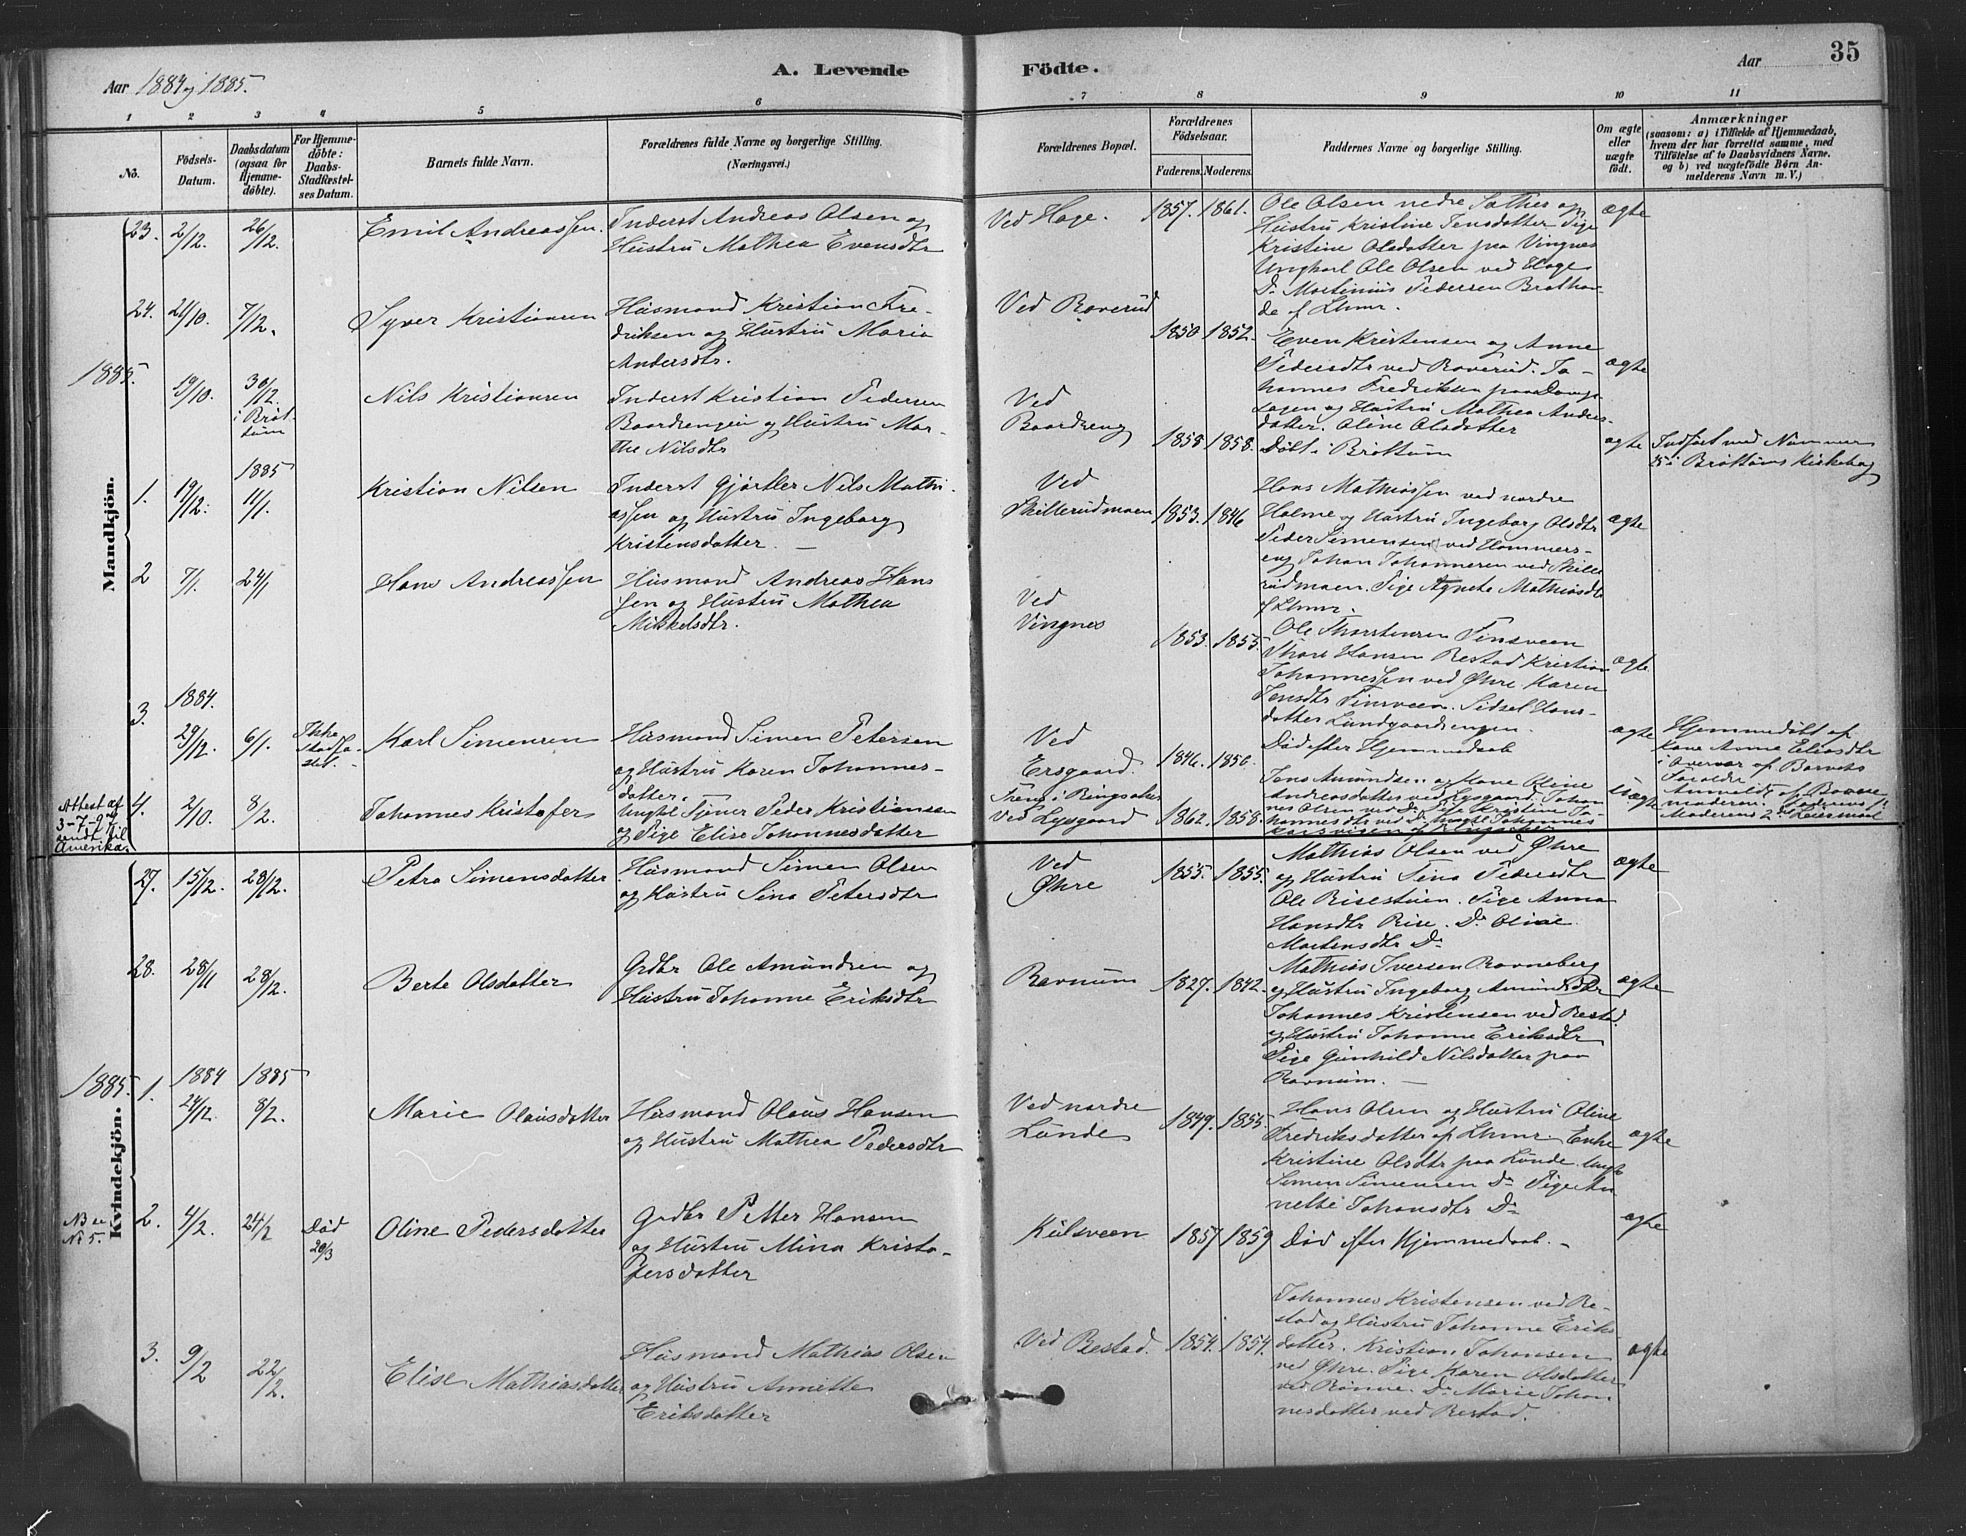 Aar 1884 og 1885.
A. Levende
Födte.
Aar
35
1 2 3 4 5 6 7 8 9 10 11
No.
Födsels-
Datum.
Daabsdatum
(ogsaa for
Hjemme-
döbte).
For Hjemme-
döbte:
Daabs-
Stadfæstel-
ses Datum.
Barnets fulde Navn.
Forældrenes fulde Navne og borgerlige Stilling.
(Næringsvei.)
Forældrenes Bopæl.
Forældrenes
Födselsaar.
Faderens. Moderens.
Faddernes Navne og borgerlige Stilling.
Om ægte
eller
uægte
födt.
Anmærkninger
(saasom: a) i Tilfælde af Hjemmedaab,
hvem der har forrettet samme, med
Tilföielse af to Daabsvidners Navne,
og b) ved uægtefödte Börn An-
melderens Navn m. V.)
Mandkjön.
23. 2/12. 26/12. Emil Andreassen
Inderst Andreas Olsen og
Hustru Mathea Evensdtr
Ved Hage. 1857. 1861.
Ole Olsen nedre Sæther og
Hustru Kristine Jensdatter Pige
Kristine Olsdatter paa Vingnes
Ungkarl Ole Olsen ved Hage
Do Martinius Pedersen
de af Lhmr.
ægte
24. 24/10. 7/12. Syver Kristiansen
Husmand Kristian Fre-
driksen og Hustru Maria
Andersdtr.
Ved Roverud 1850 1852.
Even Kristensen og Anne
Pedersdtr ved Roverud. Jo-
hannes Fredriksen
og Hustru Mathea Anders-
datter. Oline Olsdatter
ægte
1885.
19/10. 30/12. i Brøt-
tum
Nils Kristiansen
Inderst Kristian Pedersen
Baardsengen og Hustru Mar-
the Nilsdtr
Ved
Baardseng 1858 1858.
Døbt i Brøttum
ægte
Indført med Nummer
25 i Brøttums Kirkebog
1885
1. 19/12. 11/1. Kristian Nilsen
Inderst Gjørtler Nils Mathi-
assen og Hustru Ingeborg
Kristensdatter. —
Ved
Skillerudmoen 1853. 1846
Hans Mathiassen ved nordre
Holme og Hustru Ingeborg Olsdtr
Peder Simensen ved Hammers-
eng Johan Johannesen ved Skille-
rudmoen. Pige Agnete Mathiasdtr
af Lhmr.
ægte
2 7/1. 24/1 Hans Andreassen
Husmand Andreas Hans
sen og Hustru Mathea
Mikkelsdtr.
Ved
Vingnes 1853. 1855.
Ole Thorstensen Finsveen
Thore Hansen Restad Kristian
Johannessen ved Øhre Karen
Jensdtr Finsveen. Sidsel Hans-
datter Lundgaardengen.
ægte
3. 1884.
29/12. 6/1. Ikke
stadfæ-
stet.
Karl Simensen
Husmand Simen Petersen
og Hustru Karen Johannes-
datter.
Ved
Ersgaard. 1846. 1850.
Død efter Hjemmedaab
ægte
Hjemmedøbt af
Kone Anna Eliasdtr
i Overvær af Barnets
Forældre.
Attest af
3-7-97
sendt til
Amerika.
4. 2/10. 8/2. Johannes Kristofer
Ungkl Tjener Peder Kristiansen
og Pige Elise Johannesdatter
Frang i Ringsaker
Ved Lysgaard 1862. 1858.
Jens Amundsen og Kone Oline
Andreasdatter ved Lysgaard. Johan
nes Olsen
uægte
Anmeldt af Barne
moderen. Faderens 1ste
Moderens 2det Leiermaal
Kvindekjön.
27. 15/12. 28/12. Petra Simensdatter
Husmand Simen Olsen
og Hustru Sina Petersdtr
Ved
Øhre 1855. 1855.
Mathias Olsen ved Øhre
og Hustru Sina Pedersdtr
Ole Risestuen. Pige Anna
Hansdtr Rise. Do Oline
Mortensdtr Do
ægte
28. 28/11 28/12. Berte Olsdatter
Grdbr Ole Amundsen og
Hustru Johanne Eriksdtr
Ravnum 1827. 1842.
Mathias Iversen Ravneberg
og Hustru Ingeborg Amundsdtr
Johannes Kristensen ved Restad.
og Hustru Johanne Eriksdtr
Pige Gunhild Nilsdatter paa
Ravnum. —
ægte
1885. 1. 1884 1885
24/12. 8/2. Marie Olausdatter
Husmand Olaus Hansen
og Hustru Mathea Pedersdtr
Ved nordre
Lunde 1849. 1855.
Hans Olsen og Hustru Oline
Fredriksdatter af Lhmr. Enke
Kristine Olsdtr paa Lunde. Ungk
Simen Simensen Do Pige An
nette Johansdtr Do
ægte
No 5.
2. 4/2. 24/2 Død
20/3
Oline Pedersdatter
Grdbr Petter Hansen
og Hustru Mina Kristo-
fersdatter
Kulsveen 1857 1859
Død efter Hjemmedaab. -
ægte
3. 9/2 22/2. Elise Mathiasdatter
Husmand Mathias Olsen
og Hustru Annette
Eriksdatter
Ved Restad. 1854. 1854.
Johannes Kristensen ved Re-
stad og Hustru Johanne Eriks
datter. Kristian Johansen
ved Øhre. Pige Karen Olsdatter
ved Rønne. Do Marie Johan
nesdatter ved Restad.
ægte